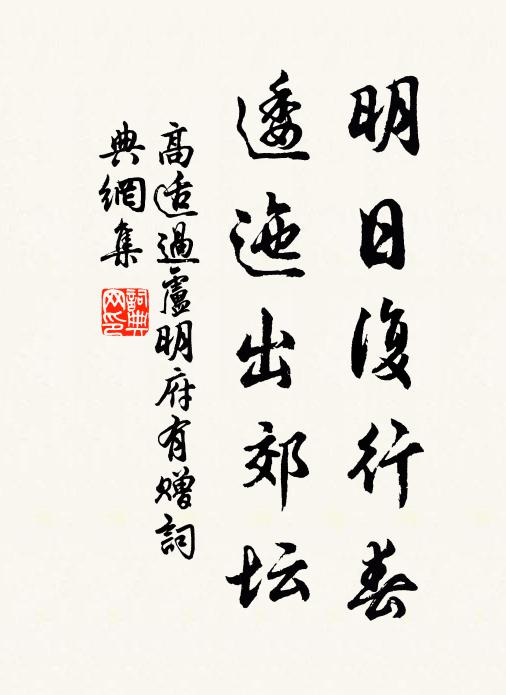 明日復行春
逶迤出郊坛
高适過盧明府有赠詞
典網集
詞典网印